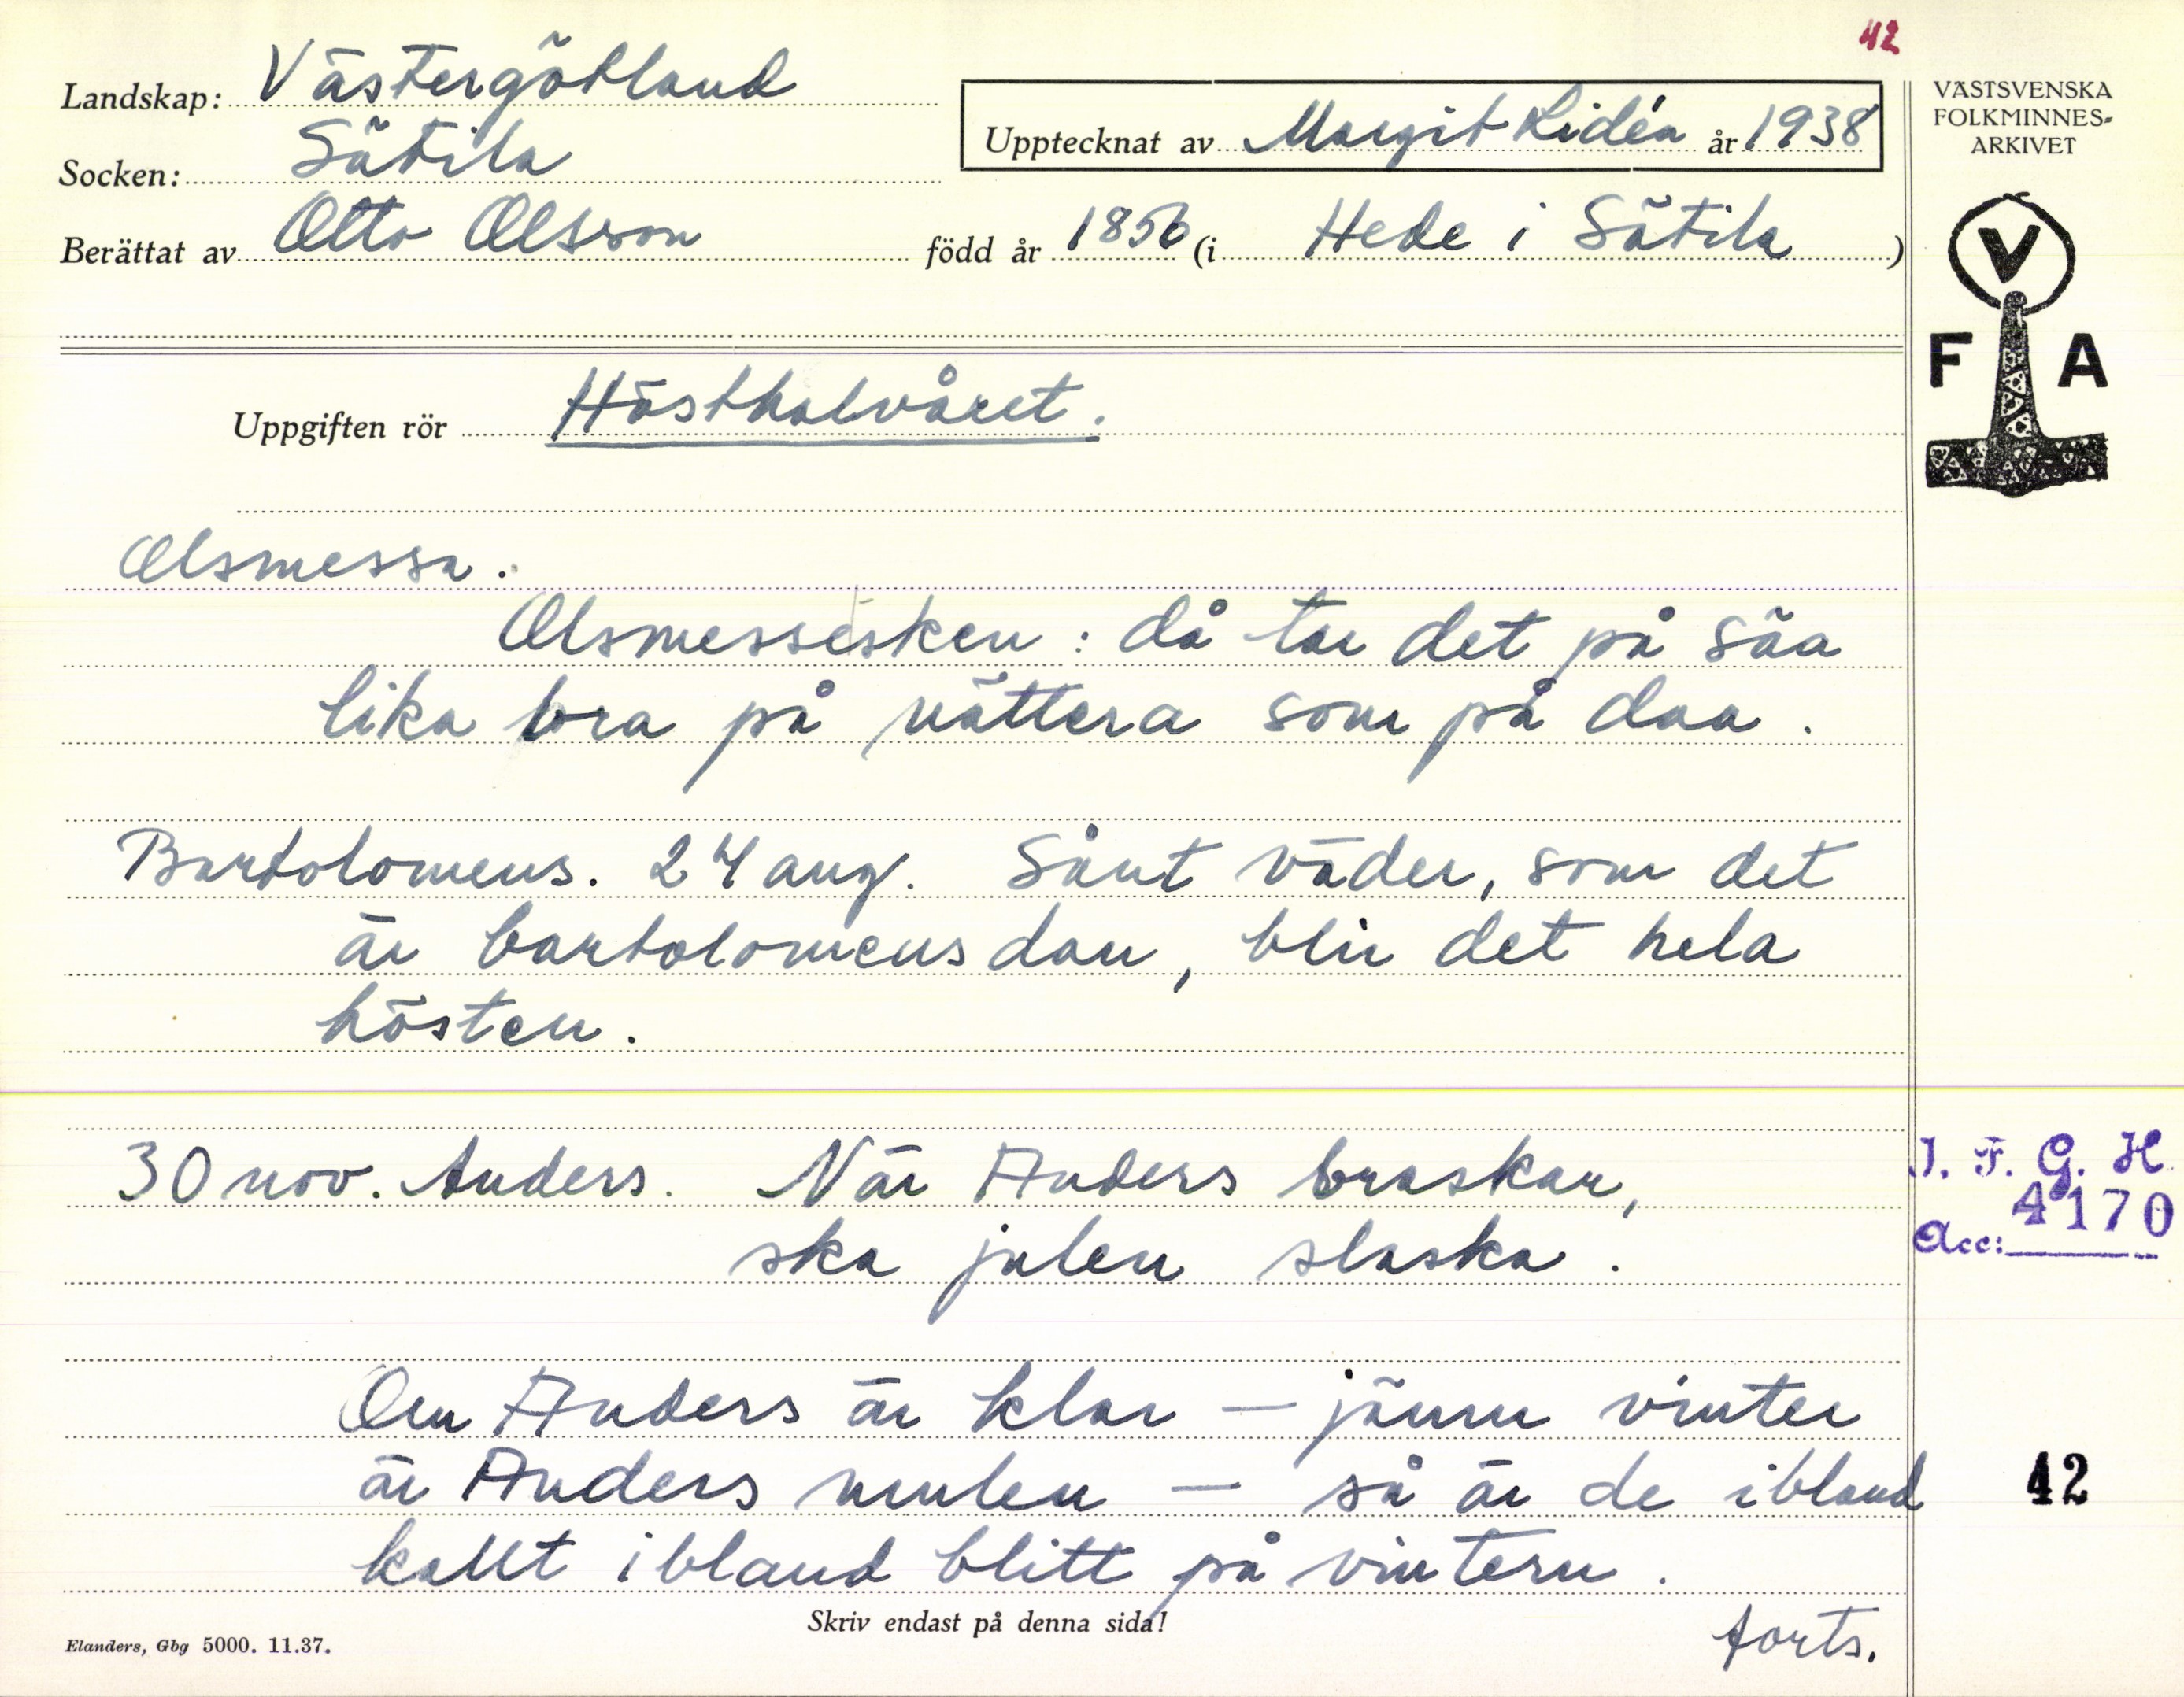 42
Landskap: Västergötland
Socken: Sätila
Upptecknat av Margit Lidén år 1938
Berättat av Otto Olsson född år 1856 (i Hede i Sätila )
VÄSTSVENSKA
FOLKMINNES=
ARKIVET
V
F A
Uppgiften rör Hösthalvåret.
Olsmessa.
Olsmessesken : då tar det på säa
lika bra på nättera som på daa.
Bartolomeus. 24 aug. Sånt väder, som det
är bartolomeusdan, blir det hela
hösten.
30 nov. Anders. När Anders braskar,
ska julen slaska.
I. F. G. H.
Acc: 4170
Om Anders är klar — jämn vinter
är Anders mulen — så är de ibland
kallt ibland blitt på vintern.
42
Skriv endast på denna sida!
forts.
Elanders, Gbg 5000. 11.37.